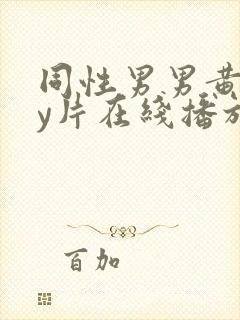 同性男男黄
y片在綫播放
百加